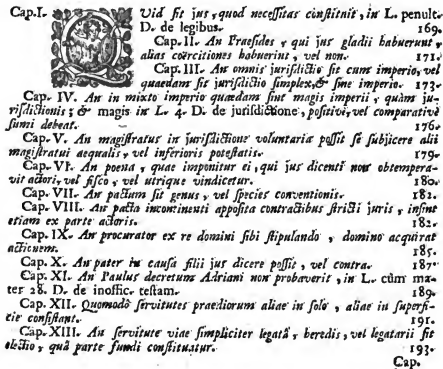 Cap. I. QUid sit jus, quod necessitas constituit, in L. penult.
D. de legibus. 169.
Cap. II. An Praesides, qui jus gladii habuerunt,
alias coërcitiones habuerint, vel non. 171.
Cap. III. An omnis jurisdictio sit cum imperio, vel
quaedam sit jurisdictio simplex, & sine imperio. 173.
Cap. IV. An in mixto imperio quaedam sint magis imperii, quàm ju-
risdictionis; & magis in L. 4. D. de jurisdictione, positivè, vel comparativè
sumi debeat. 176.
Cap. V. An magistratus in jurisdictione voluntaria possit se subjicere alii
magistratui aequali, vel inferioris potestatis. 179.
Cap. VI. An poena, quae imponitur ei, qui jus dicenti non obtempera-
vit actori, vel fisco, vel utrique vindicetur. 180.
Cap. VII. An pactum sit genus, vel species conventionis. 182.
Cap. VIII. An pacta incontinenti apposita contractibus stricti juris, insint
etiam ex parte actoris. 182.
Cap. IX. An procurator ex re domini sibi stipulando, domino acquirat
actionem. 185.
Cap. X. An pater in causa filii jus dicere possit, vel contra. 187.
Cap. XI. An Paulus decretum Adriani non probaverit, in L. cùm ma-
ter 28. D. de inoffic. testam. 189.
Cap. XII. Quomodò servitutes praediorum aliae in solo, aliae in superfi-
cie consistant. 191.
Cap. XIII. An servitute viae simpliciter legatâ, heredis, vel legatarii sit
electio, quâ parte fundi constituatur. 193.
Cap.